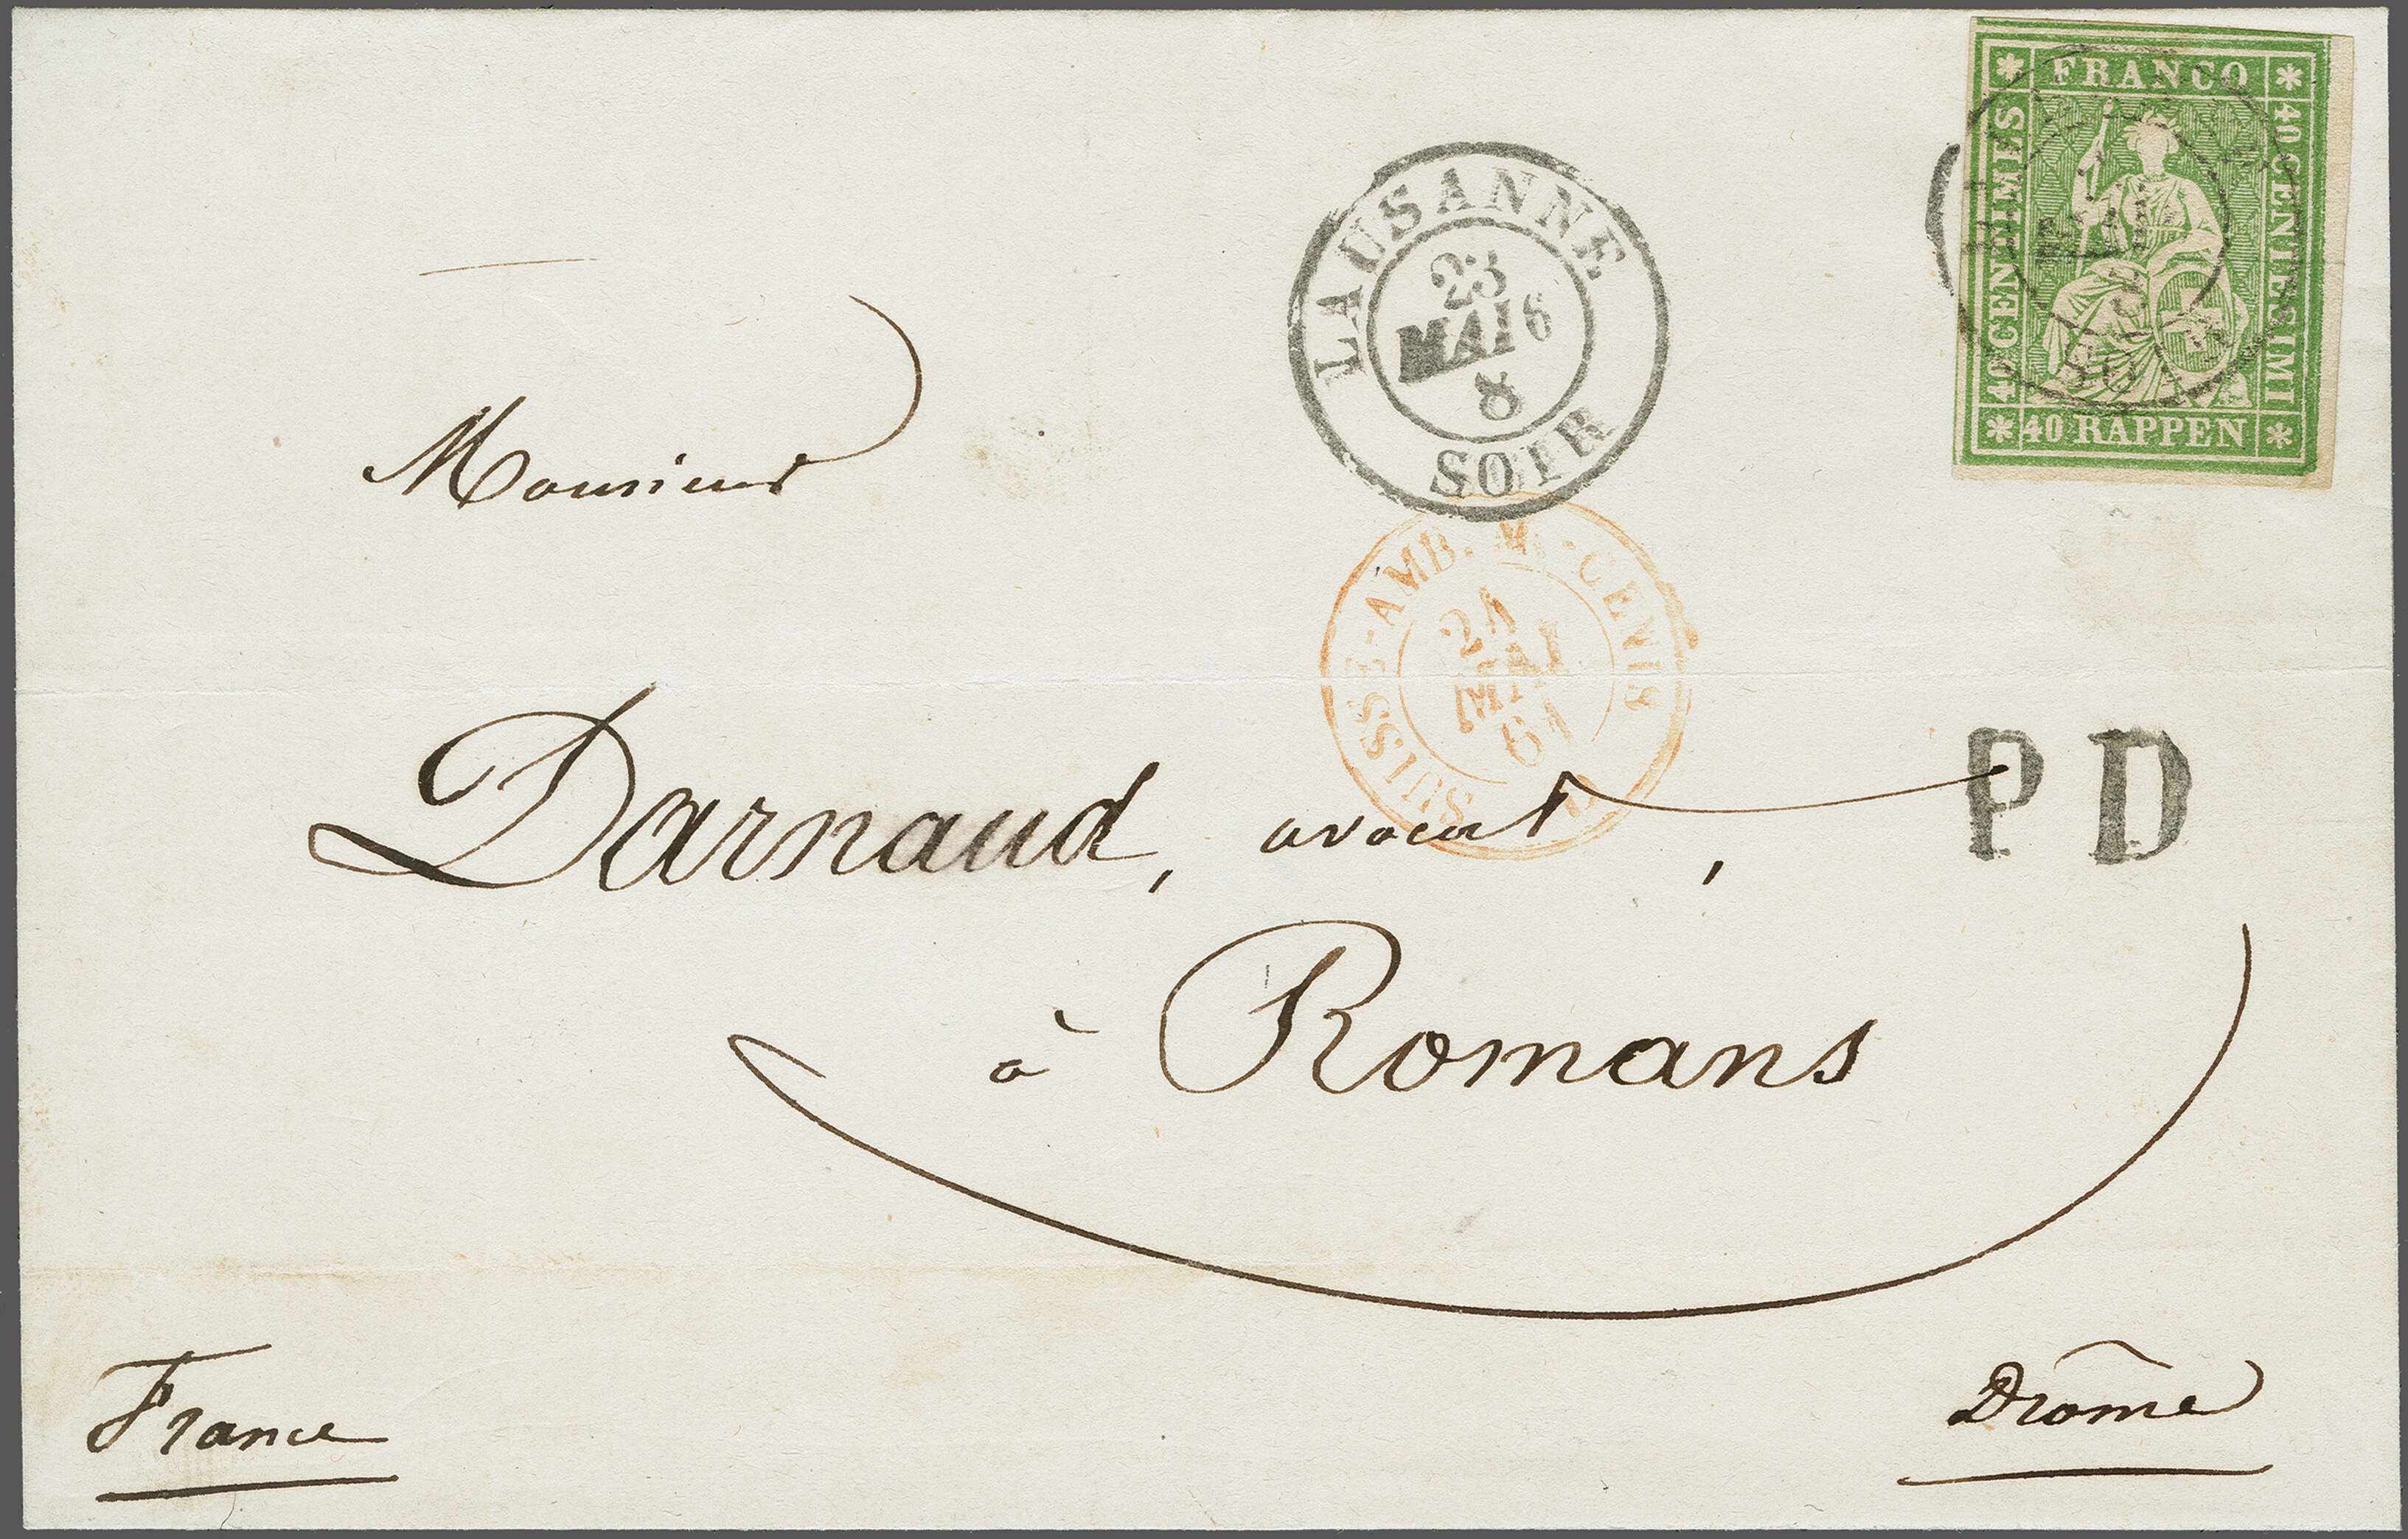 FRANCO
40 CENTIMES
40 CENTESIMI
40 RAPPEN
LAUSANNE
23
MAI 6
8
SOIR
SUISSE-AMB. M.-CENIS
24
MAI
61
Monsieur
Darnaud, avocat,
PD
à Romans
France
Drôme